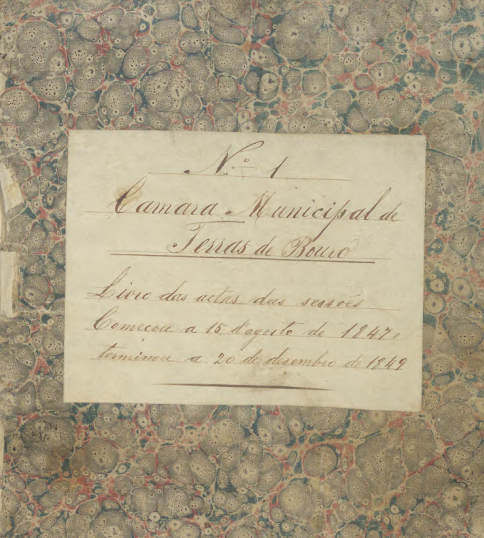 N.º 1
Camara Municipal de
Terras de Bouro
Livro das actas das sessões
Começou a 15 d'agosto de 1847 e
terminou a 20 de desembro de 1849